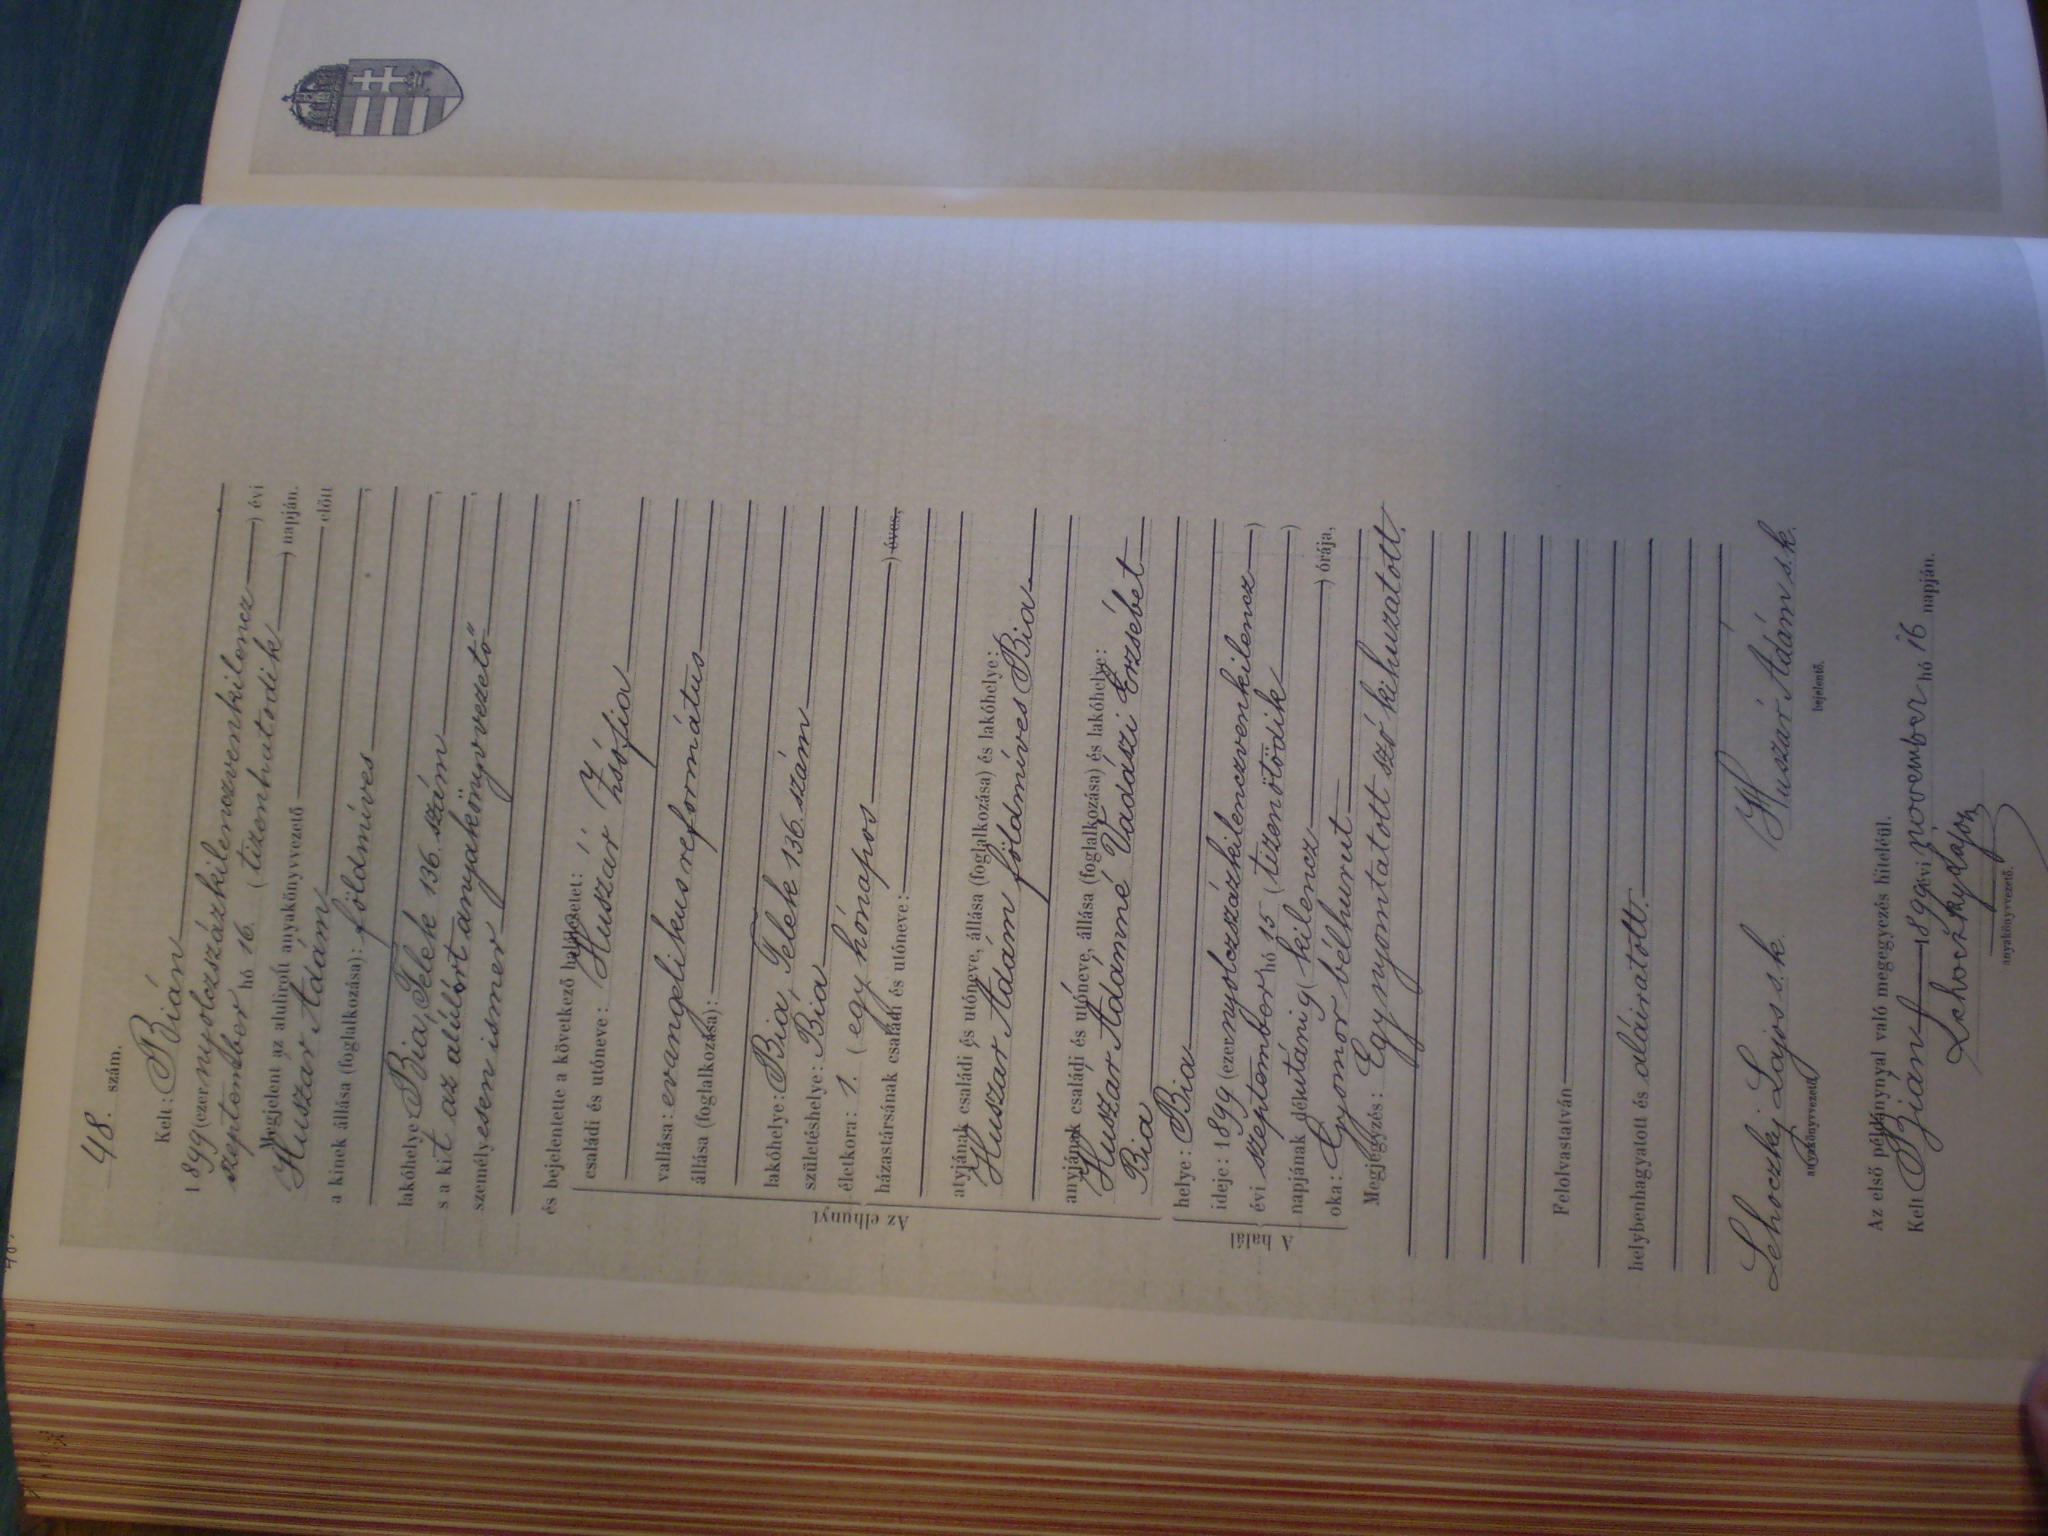 48. szám.
Kelt: Bián
1899 (ezernyolczszázkilenczvenkilencz) évi
szeptember hó 16. (tizenhatodik) napján.
Megjelent az alulirott anyakönyvvezető előtt
Huszár Ádám
a kinek állása (foglalkozása): földmíves
lakóhelye Bia, Telek 136. szám
s a kit az alúlirt anyakönyvvezető
személyesen ismer
és bejelentette a következő halálesetet:
családi és utóneve: Huszár Zsófia
vallása: evangelikus református
állása (foglalkozása):
lakóhelye: Bia, Telek 136. szám
születéshelye: Bia
életkora: 1. (egy hónapos) éves,
házastársának családi és utóneve:
Az elhunyt
atyjának családi és utóneve, állása (foglalkozása) és lakóhelye:
Huszár Ádám földmíves Bia
anyjának családi és utóneve, állása (foglalkozása) és lakóhelye:
Huszár Ádámné Vadászi Erzsébet
Bia
helye: Bia
ideje: 1899 (ezernyolczszázkilenczvenkilencz)
évi szeptember hó 15 (tizenötödik)
napjának délutáni 9 (kilencz) órája,
oka: Gyomor bélhurut
A halál
Megjegyzés: Egy nyomtatott szó kihuzatott.
Felolvastatván
helybenhagyatott és aláiratott.
Lehoczky Lajos s.k. Huszár Ádám s.k.
anyakönyvvezető bejelentő.
Az első példánynyal való megegyezés hiteléül.
Kelt Bián 1899 évi november hó 16 napján.
Lehoczky Lajos
anyakönyvvezető.